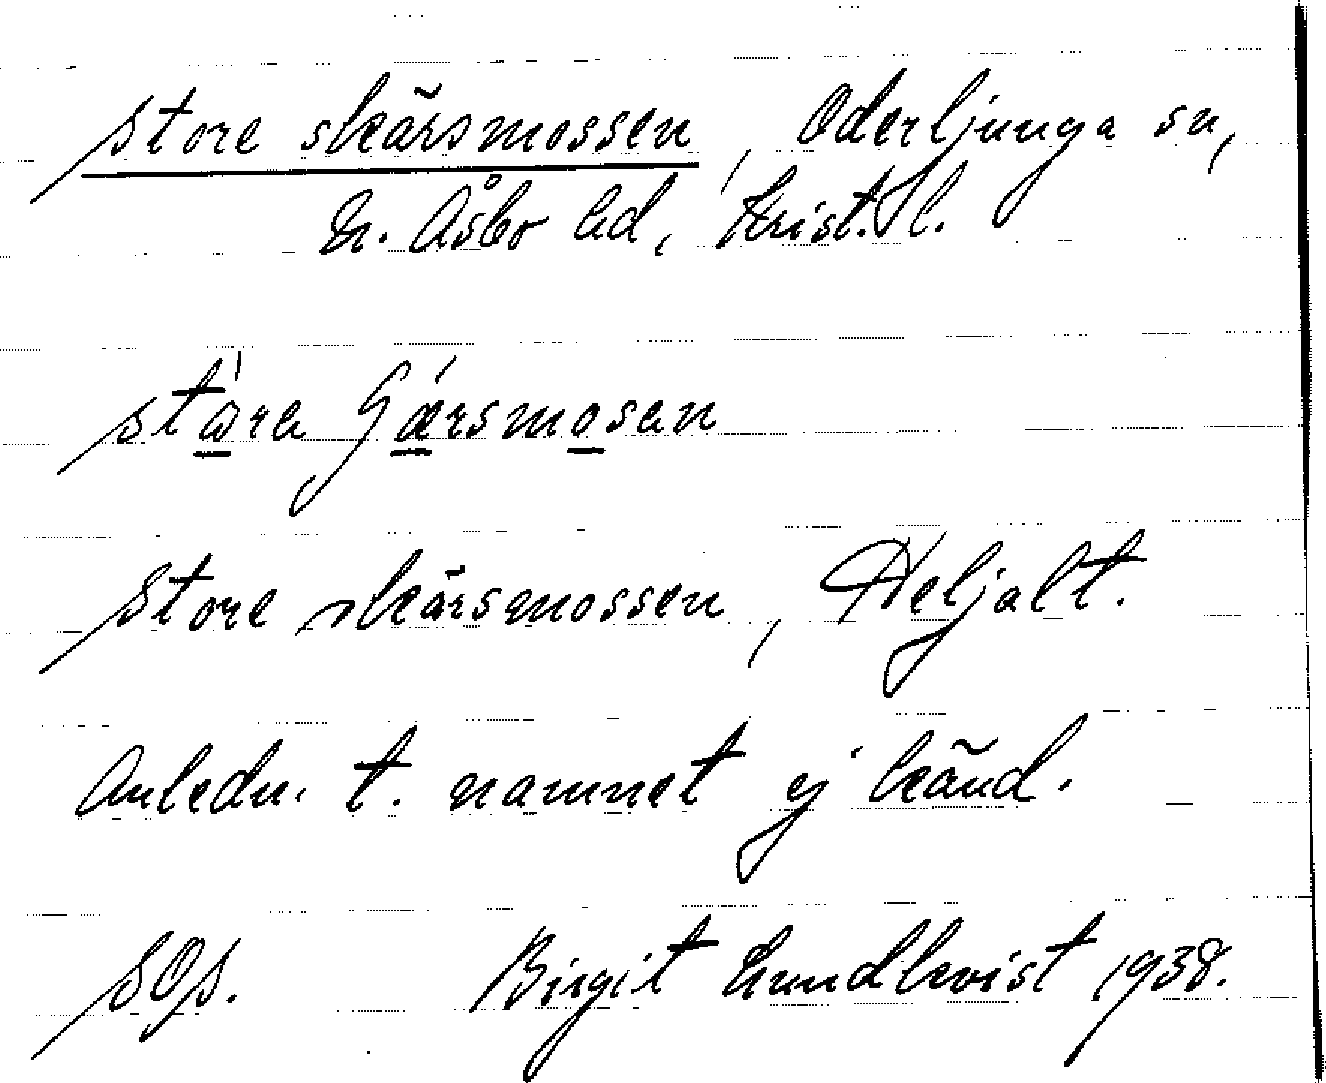 store skärsmossen, Oderljunga sn,
N. Åsbo hd, Krist. l.
stɷ́ra ʃǽrsmosan
store skärsmossen, Heljalt.
Anledn. t. namnet ej känd.
SOS. Birgit Lundkvist 1938.